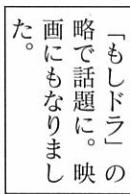 「もしドラ」の
略で話題に。映
画にもなりまし
た。